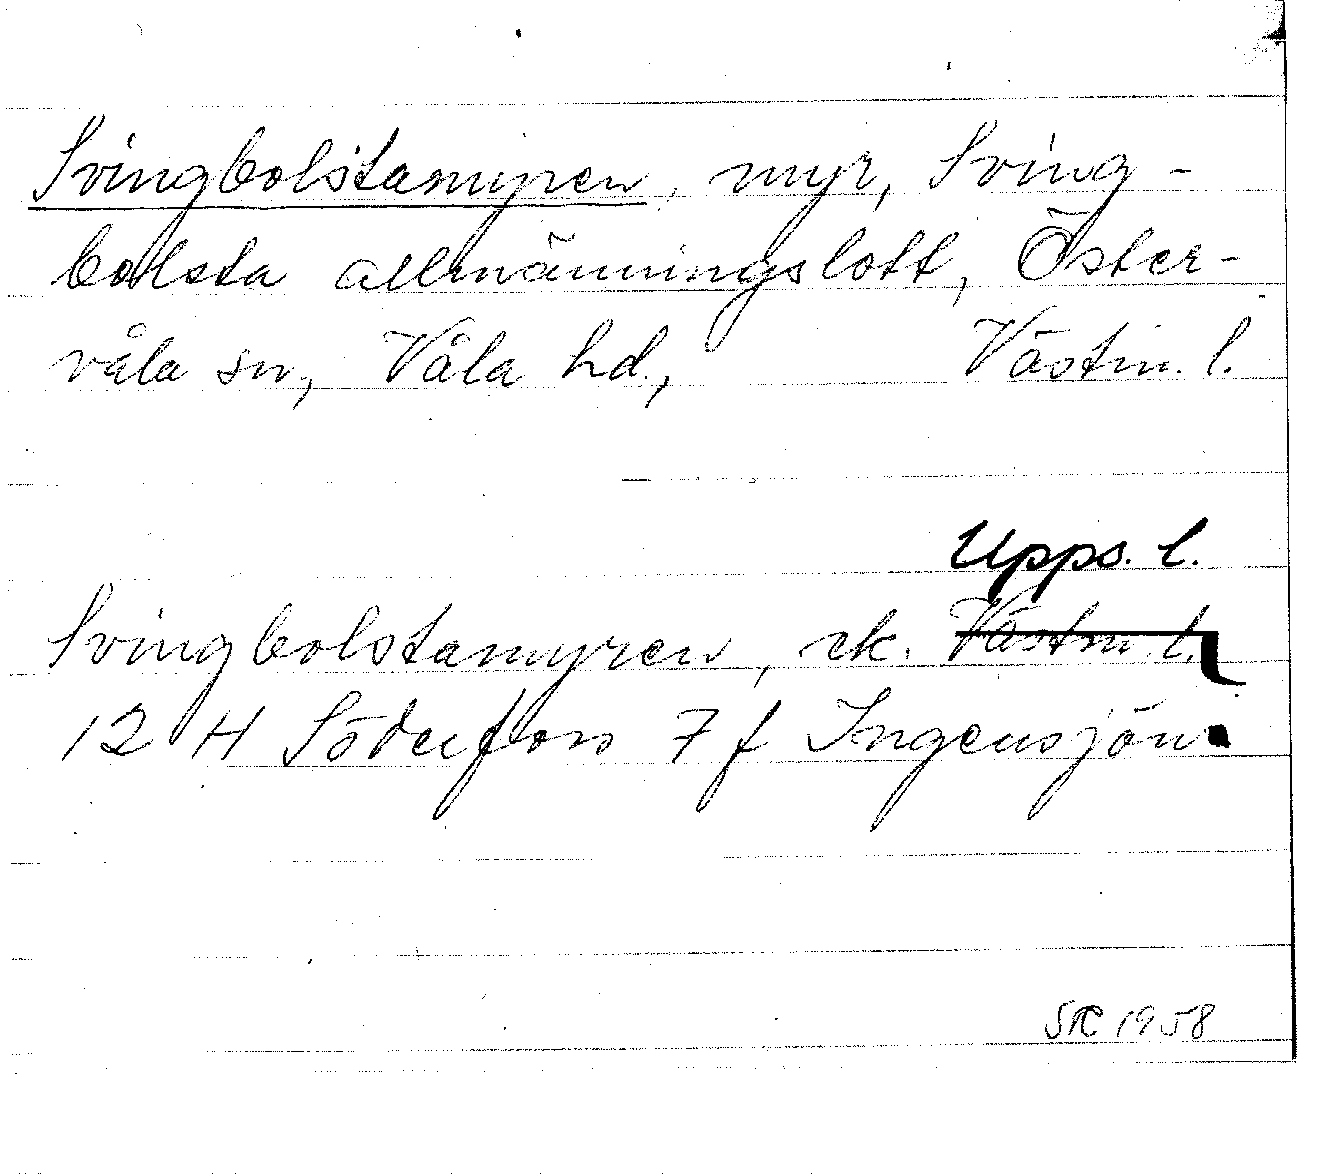 Svingbolstamyren, myr, Sving-
bolsta allmänningslott, Öster-
våla sn, Våla hd, Västm. l.
Upps. l.
Svingbolstamyren, ek. Västm l.
12 H Söderfors 7 f Ingensjön.
1958